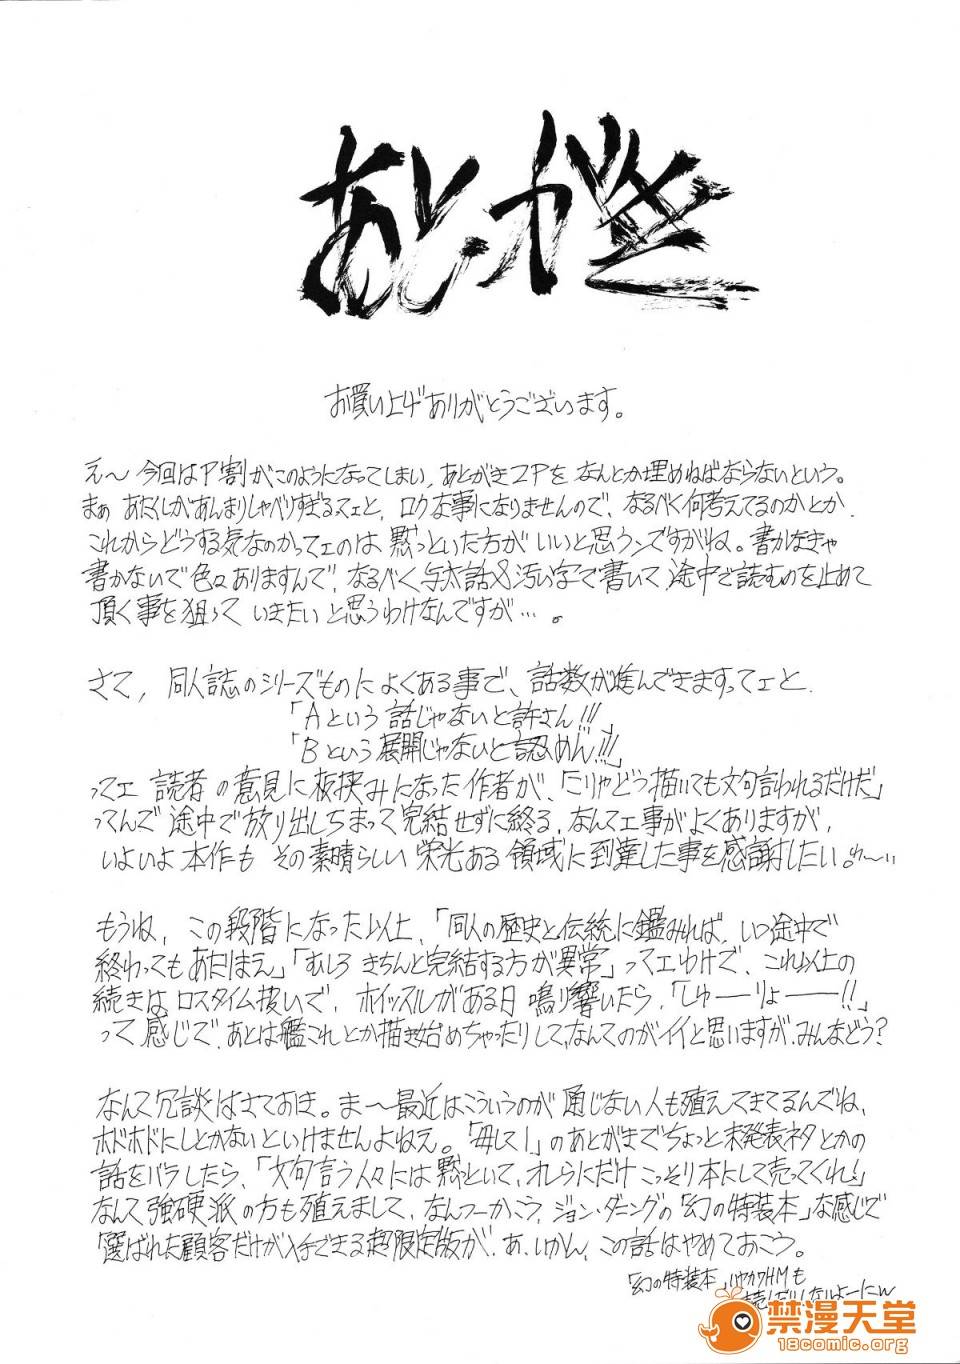 あとがき
お買い上げありがとうございます。
え〜今回はP割がこのようになってしまい、あとがき2Pをなんとか埋めねばならないという。
まぁあたくしがあんまりしゃべりすぎるてェと、ロクな事になりませんので、なるべく何考えてるのかとか、
これからどうする気なのかってェのは黙っといた方がいいと思うンですがね。書かなきゃ
書かないで色々ありますんで、なるべく与太話&汚い字で書いて途中で読むのを止めて
頂く事を狙っていきたいと思うわけなんですが…。
さて、同人誌のシリーズものによくある事で、話数が進んできますってェと、
「Aという話じゃないと許さん!!!」
「Bという展開じゃないと認めん!!!」
ってェ読者の意見に板挟みになった作者が、「こりゃどう描いても文句言われるだけだ」
ってんで途中で放り出しちまって完結せずに終る、なんてェ事がよくありますが、
いよいよ本作もその素晴らしい栄光ある領域に到達した事を感謝したい。
もうね、この段階になった以上、「同人の歴史と伝統に鑑みれば、いつ途中で
終わってもあたぼまえ」「むしろきちんと完結する方が異常」ってェわけで、これ以上の
続きはロスタイム扱いで、ホイッスルがある日鳴り響いたら、「しゅーりょー!!」
って感じで、あとは艦これとか描き始めちゃったりして、なんてのがイイと思いますが、みんなどう?
なんて冗談はさておき。ま〜最近はこういうのが通じない人も殖えてきてるんでね、
ホドホドにしとかないといけませんよねえ。「母して1」のあとがきでちょっと未発表ネタとかの
話をバラしたら、「文句言う人々には黙といて、オレらにだけこっそり本にして売ってくれ!」
なんて強硬派の方も殖えまして、なんつーかこう、ジョン・ダニングの「幻の特装本」な感じで
「選ばれた顧客だけが入手できる超限定版が、あ、いかん、この話はやめておこう。
「幻の特装本」ハヤカワHMも
禁漫天堂
18comic.org